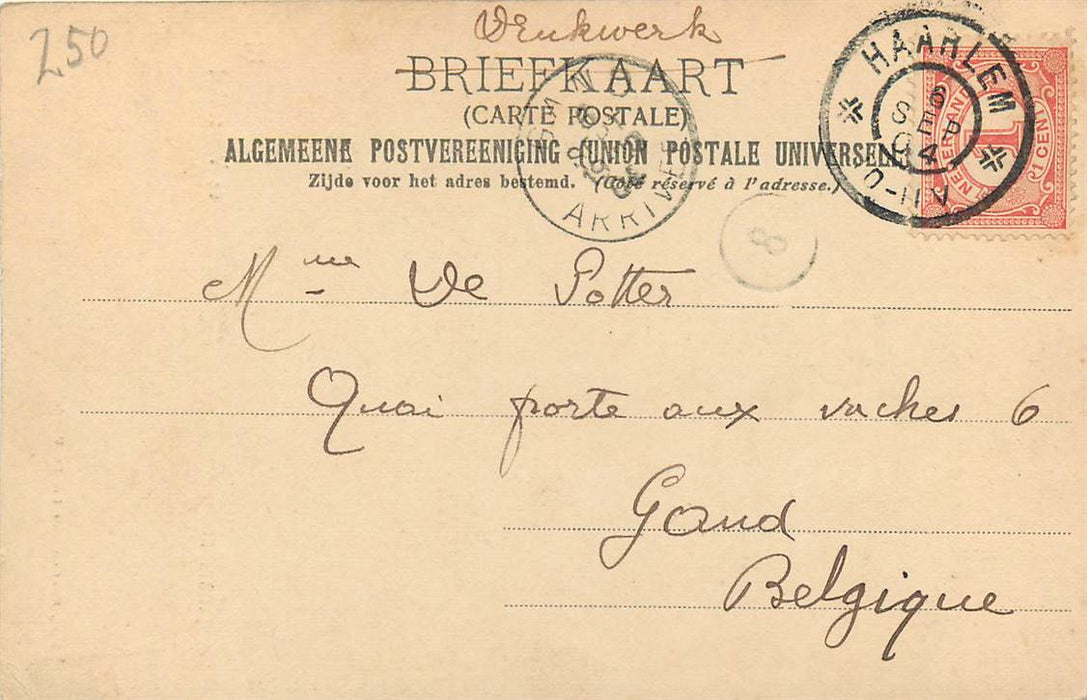 250
Drukwerk
BRIEFKAART
(CARTE POSTALE)
ALGEMEENE POSTVEREENIGING (UNION POSTALE UNIVERSELLE)
Zijde voor het adres bestemd. (Coté réservé à l'adresse.)
HAARLEM
6 SEP 04
NEDERLAND
1
1 CENT
ARRIV
8
Mme De Potter
Quai porte aux vaches 6
Gand
Belgique